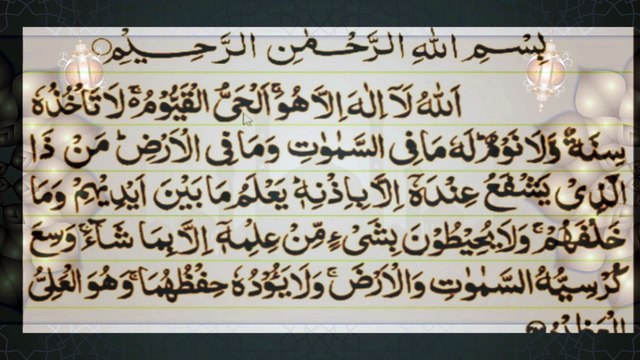 بِسْمِ اللهِ الرَّحْمٰنِ الرَّحِيْمِ
اَللهُ لَاۤ اِلٰهَ اِلَّا هُوَۚ اَلْحَیُّ الْقَيُّوْمُ ۚ۬ لَا تَاْخُذُهٗ
سِنَةٌ وَّلَا نَوْمٌؕ لَهٗ مَا فِی السَّمٰوٰتِ وَمَا فِی الْاَرْضِؕ مَنْ ذَا
الَّذِیْ يَشْفَعُ عِنْدَهٗۤ اِلَّا بِاِذْنِهٖؕ يَعْلَمُ مَا بَيْنَ اَيْدِيْهِمْ وَمَا
خَلْفَهُمْۚ وَلَا يُحِيْطُوْنَ بِشَیْءٍ مِّنْ عِلْمِهٖۤ اِلَّا بِمَا شَآءَۚ وَسِعَ
كُرْسِيُّهُ السَّمٰوٰتِ وَالْاَرْضَۚ وَلَا يَئُوْدُهٗ حِفْظُهُمَاۚ وَهُوَ الْعَلِیُّ